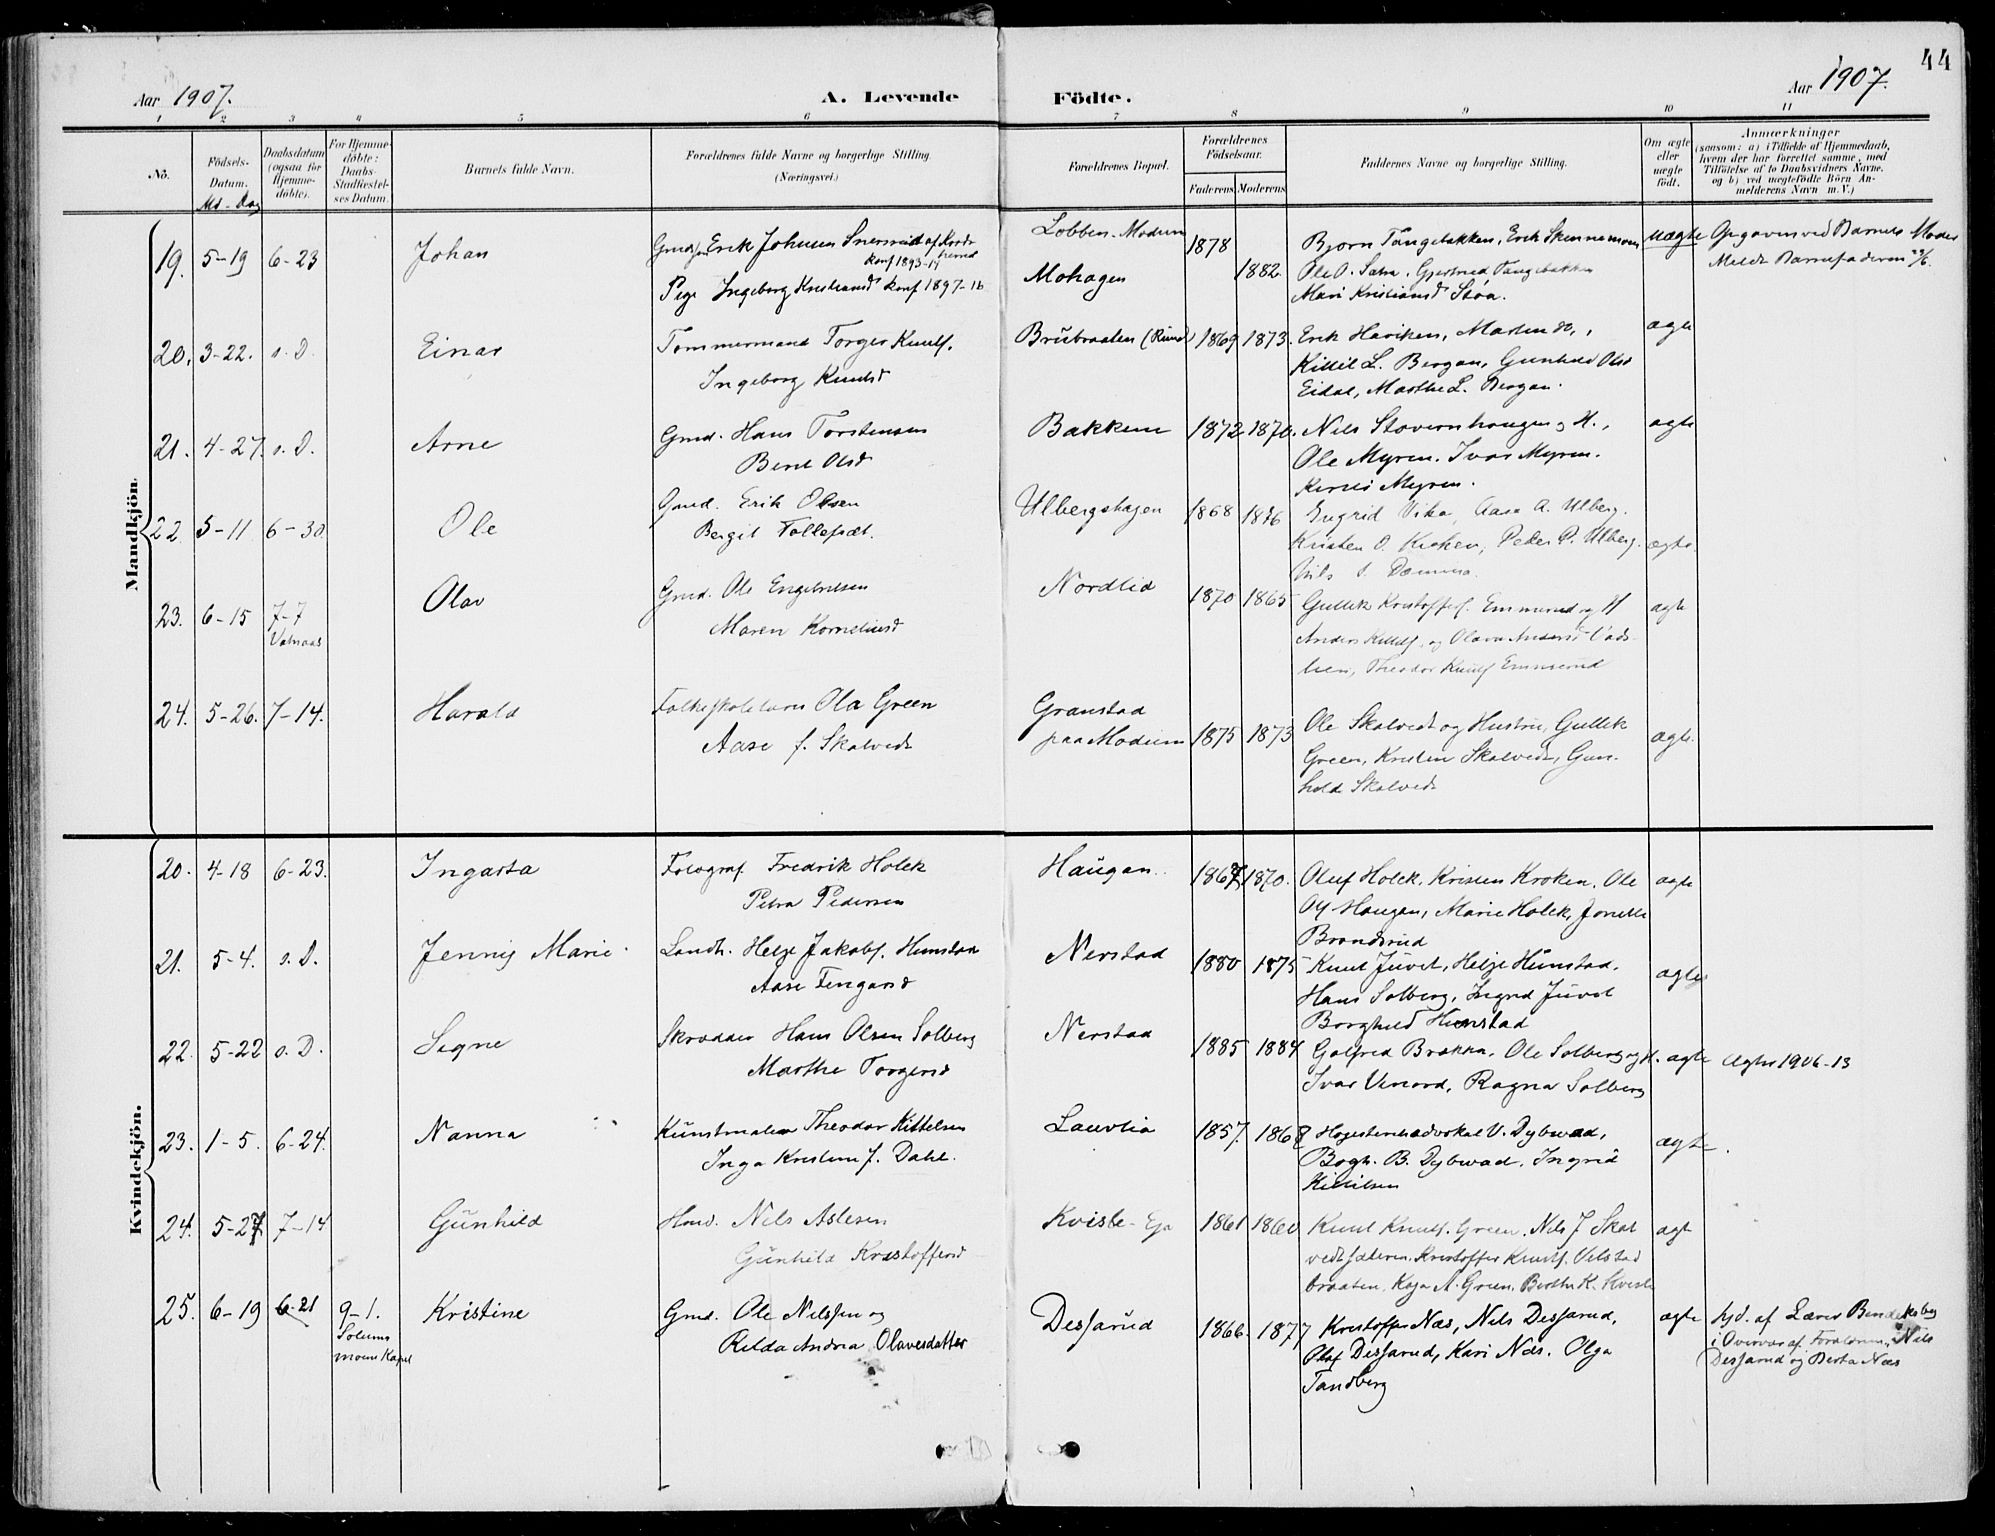 44
Aar 1907.
A. Levende Födte.
Aar 1907.
1 2 3 4 5 6 7 8 9 10 11
No.
Födsels-
Datum.
Md - Dag
Daabsdatum
(ogsaa for
Hjemme-
döbte).
For Hjemme-
döbte:
Daabs-
Stadfæstel-
ses Datum.
Barnets fulde Navn.
Forældrenes fulde Navne og borgerlige Stilling
(Næringsvei.)
Forældrenes Bopæl.
Forældrenes
Födselsaar.
Faderens Moderens
Faddernes Navne og borgerlige Stilling.
Om ægte
eller
uægte
födt.
Anmærkninger
(saasom: a) i Tilfælde af Hjemmedaab,
hvem der har forrettet samme, med
Tilföielse af to Daabsvidners Navne,
og b) ved uægtefödte Börn An-
melderens Navn m. V.)
Mandkjön.
19. 5-19 6-23 Johan
Erik Johnsen Snersrud af
konf 1893-14
Pige Ingeborg Kristiansd konf 1897-16
Lobben. Modum
Mohagen
1878 1882.
Bjørn Tangebakken, Erik
Ole O. Gjertrud Tangebakken
Mari Kristiansd Støa.
uægte Opgaven ved Barnets Moder
Meldt Barnefaderen
20. 3-22. s. D. Einar
Tømmermand Torger Knuts.
Ingeborg Knutsd
Brubraaten (Rund) 1869 1873.
Erik Haviken, Marten do,
Kittil L. Bergan, Gunhild Olsd
Eidal, Marthe L. Bergan.
ægte
21. 4-27. s. D. Arne
Gmd. Hans Torstensen
Berit Olsd
Bakken 1872 1870.
Nils Stovernhaugen og H.,
Ole Myren. Ivar Myren.
Myren.
ægte
22 5-11 6-30 Ole
Gmd. Erik Olsen
Bergit Tollefsdt.
Ulbergshagen 1868 1876
Ingrid Vika, Aasa A. Ulberg.
Kristen O. Kroken, Peder P. Ulberg.
Nils
ægte.
23. 6-15 7-7 Olav
Gmd. Ole Engebretsen
Maren Korneliusd
Nordlid 1870 1865
Gullik Kristoffers. Emmerud og H
Anders Kittils. og Olava Andersd
Theodor Knuts Emmerud
ægte
24. 5-26. 7-14. Harald
Folkeskolelærer Ola Green
Aase f. Skalvedt
Granstad
paa Modum 1875 1873
Ole Skalvedt og Hustru, Gullik
Green, Kristen Skalvedt, Gun-
hild Skalvedt
ægte.
Kvindekjön.
20. 4-18 6-23. Ingarta
Fotograf Fredrik Holck
Petra Pedersen
Haugan. 1867 1870.
Oluf Holck, Kristen Kroken, Ole
Haugan, Marie Holck,
Brandsrud
ægte
21. 5-4. s. D. Jenny Marie.
Landh. Helge Jakobs. Hunstad
Aase Tengersd
Nerstad 1880 1875
Knut Juvet, Helge Hunstad.
Hans Solberg, Ingrid Juvet
Borghild Hunstad
ægte
22. 5-22 s. D. Signe
Skrædder Hans Olsen Solberg
Marthe Torgersd
Nerstad 1885 1884
Golfred Brekka, Ole Solberg og H.
Ivar Vinord, Ragna Solberg
ægte 1906-13
23. 1-5. 6-24. Nanna
Kunstmaler Theodor Kittelsen
Inga Kristine f. Dahl.
Lauvlia 1857. 1868
Høiesteretsadvokat V. Dybwad,
Bogh. B. Dybwad, Ingrid
Kittilsen
ægte.
24. 5-27 7-14 Gunhild
Hmd. Nils Aslesen
Gunhild Kristoffersd
Kviste-Eje 1861 1860
Knut Knuts. Green. Nils J Skal
vedt Kristoffer Knuts. Velstad
braaten, Kaja M. Green, Berthe K. Kviste
ægt
25. 6-19 6-21 9-1.
Solums
moens Kapel
Kristine
Gmd. Ole Nilssen og
Rilda Andrea Olavesdatter
Desserud 1866. 1877
Kristoffer Næs, Nils Desserud,
Olaf Desserud, Kari Næs. Olga
Tandberg
ægte hjd. af Lærer
i Overvær af Forældrene, Nils
Desserud og Berta Næs